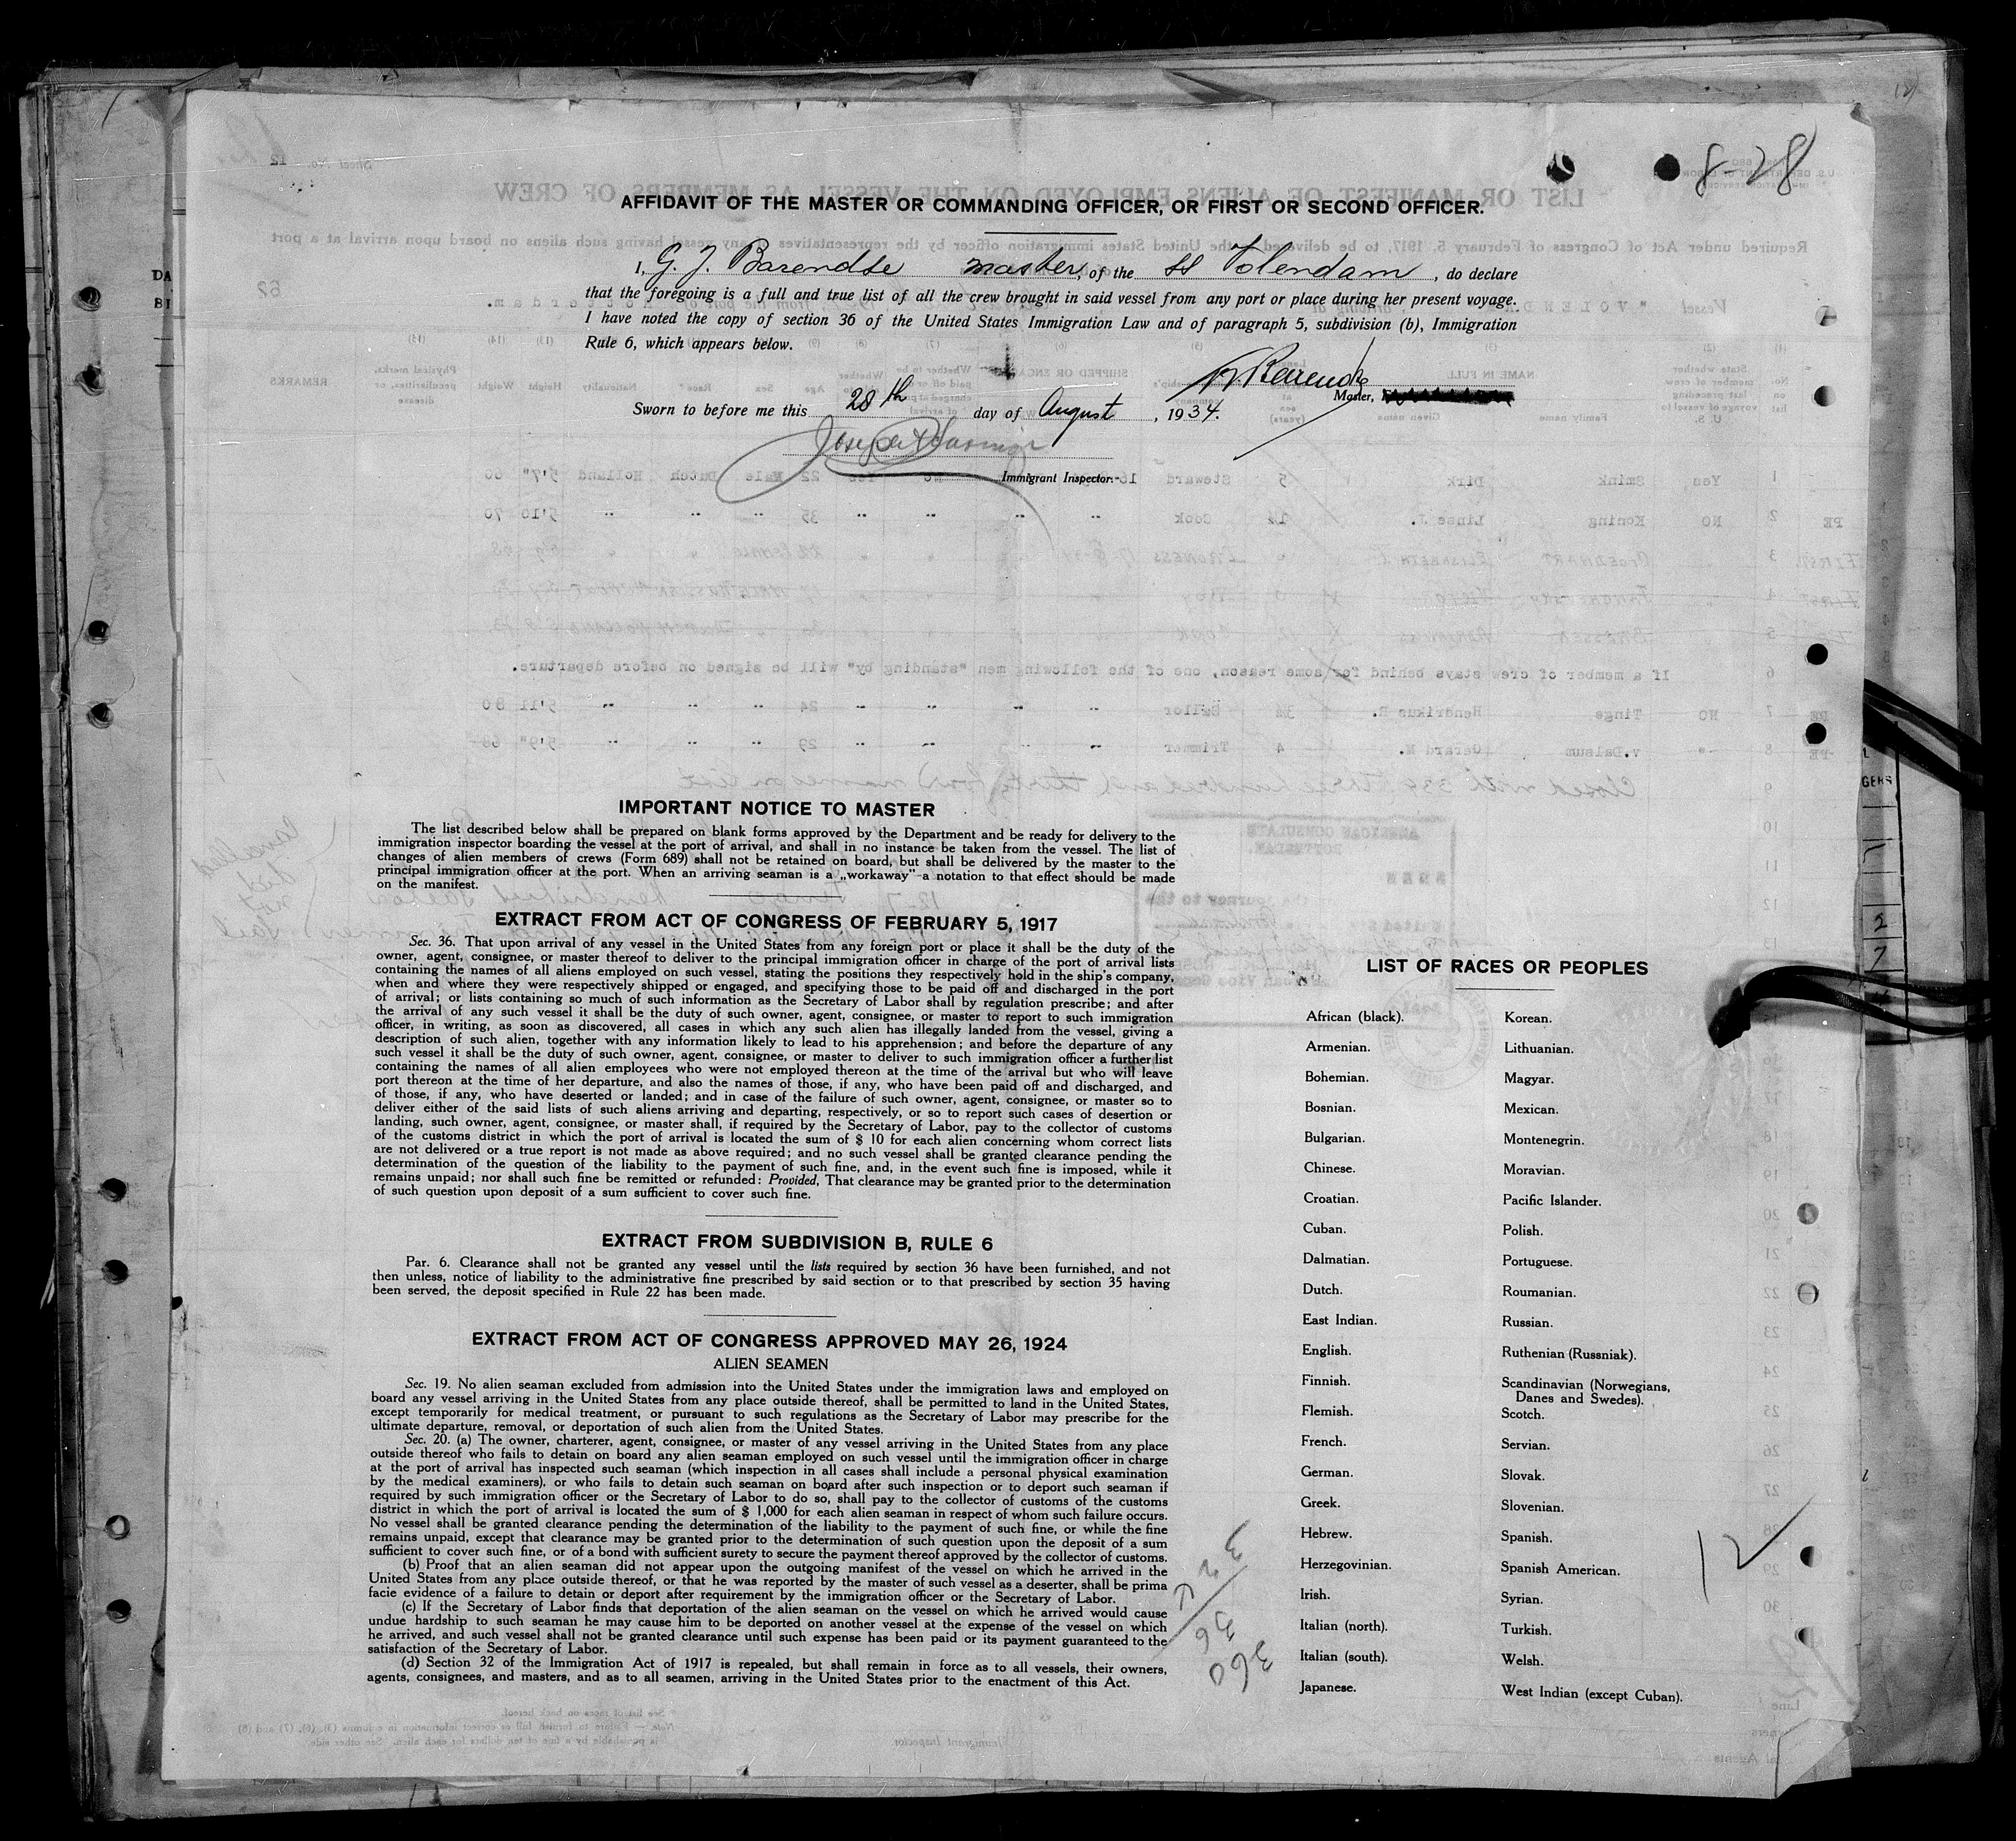 8-28
AFFIDAVIT OF THE MASTER OR COMMANDING OFFICER, OR FIRST OR SECOND OFFICER.
I, G. J. Barendse master, of the SS Volendam, do declare
that the foregoing is a full and true list of all the crew brought in said vessel from any port or place during her present voyage.
I have noted the copy of section 36 of the United States Immigration Law and of paragraph 5, subdivision (b), Immigration
Rule 6, which appears below.
Master,
Sworn to before me this 28th day of August, 1934.
Immigrant Inspector.
IMPORTANT NOTICE TO MASTER
The list described below shall be prepared on blank forms approved by the Department and be ready for delivery to the
immigration inspector boarding the vessel at the port of arrival, and shall in no instance be taken from the vessel. The list of
changes of alien members of crews (Form 689) shall not be retained on board, but shall be delivered by the master to the
principal immigration officer at the port. When an arriving seaman is a „workaway" a notation to that effect should be made
on the manifest.
EXTRACT FROM ACT OF CONGRESS OF FEBRUARY 5, 1917
Sec. 36. That upon arrival of any vessel in the United States from any foreign port or place it shall be the duty of the
owner, agent, consignee, or master thereof to deliver to the principal immigration officer in charge of the port of arrival lists
containing the names of all aliens employed on such vessel, stating the positions they respectively hold in the ship's company,
when and where they were respectively shipped or engaged, and specifying those to be paid off and discharged in the port
of arrival; or lists containing so much of such information as the Secretary of Labor shall by regulation prescribe; and after
the arrival of any such vessel it shall be the duty of such owner, agent, consignee, or master to report to such immigration
officer, in writing, as soon as discovered, all cases in which any such alien has illegally landed from the vessel, giving a
description of such alien, together with any information likely to lead to his apprehension; and before the departure of any
such vessel it shall be the duty of such owner, agent, consignee, or master to deliver to such immigration officer a further list
containing the names of all alien employees who were not employed thereon at the time of the arrival but who will leave
port thereon at the time of her departure, and also the names of those, if any, who have been paid off and discharged, and
of those, if any, who have deserted or landed; and in case of the failure of such owner, agent, consignee, or master so to
deliver either of the said lists of such aliens arriving and departing, respectively, or so to report such cases of desertion or
landing, such owner, agent, consignee, or master shall, if required by the Secretary of Labor, pay to the collector of customs
of the customs district in which the port of arrival is located the sum of $ 10 for each alien concerning whom correct lists
are not delivered or a true report is not made as above required; and no such vessel shall be granted clearance pending the
determination of the question of the liability to the payment of such fine, and, in the event such fine is imposed, while it
remains unpaid; nor shall such fine be remitted or refunded: Provided, That clearance may be granted prior to the determination
of such question upon deposit of a sum sufficient to cover such fine.
EXTRACT FROM SUBDIVISION B, RULE 6
Par. 6. Clearance shall not be granted any vessel until the lists required by section 36 have been furnished, and not
then unless, notice of liability to the administrative fine prescribed by said section or to that prescribed by section 35 having
been served, the deposit specified in Rule 22 has been made.
EXTRACT FROM ACT OF CONGRESS APPROVED MAY 26, 1924
ALIEN SEAMEN
Sec. 19. No alien seaman excluded from admission into the United States under the immigration laws and employed on
board any vessel arriving in the United States from any place outside thereof, shall be permitted to land in the United States,
except temporarily for medical treatment, or pursuant to such regulations as the Secretary of Labor may prescribe for the
ultimate departure, removal, or deportation of such alien from the United States.
Sec. 20. (a) The owner, charterer, agent, consignee, or master of any vessel arriving in the United States from any place
outside thereof who fails to detain on board any alien seaman employed on such vessel until the immigration officer in charge
at the port of arrival has inspected such seaman (which inspection in all cases shall include a personal physical examination
by the medical examiners), or who fails to detain such seaman on board after such inspection or to deport such seaman if
required by such immigration officer or the Secretary of Labor to do so, shall pay to the collector of customs of the customs
district in which the port of arrival is located the sum of $ 1,000 for each alien seaman in respect of whom such failure occurs.
No vessel shall be granted clearance pending the determination of the liability to the payment of such fine, or while the fine
remains unpaid, except that clearance may be granted prior to the determination of such question upon the deposit of a sum
sufficient to cover such fine, or of a bond with sufficient surety to secure the payment thereof approved by the collector of customs.
(b) Proof that an alien seaman did not appear upon the outgoing manifest of the vessel on which he arrived in the
United States from any place outside thereof, or that he was reported by the master of such vessel as a deserter, shall be prima
facie evidence of a failure to detain or deport after requirement by the immigration officer or the Secretary of Labor.
(c) If the Secretary of Labor finds that deportation of the alien seaman on the vessel on which he arrived would cause
undue hardship to such seaman he may cause him to be deported on another vessel at the expense of the vessel on which
he arrived, and such vessel shall not be granted clearance until such expense has been paid or its payment guaranteed to the
satisfaction of the Secretary of Labor.
(d) Section 32 of the Immigration Act of 1917 is repealed, but shall remain in force as to all vessels, their owners,
agents, consignees, and masters, and as to all seamen, arriving in the United States prior to the enactment of this Act.
36
360
LIST OF RACES OR PEOPLES
African (black).
Armenian.
Bohemian.
Bosnian.
Bulgarian.
Chinese.
Croatian.
Cuban.
Dalmatian.
Dutch.
East Indian.
English.
Finnish.
Flemish.
French.
German.
Greek.
Hebrew.
Herzegovinian.
Irish.
Italian (north).
Italian (south).
Japanese.
Korean.
Lithuanian.
Magyar.
Mexican.
Montenegrin.
Moravian.
Pacific Islander.
Polish.
Portuguese.
Roumanian.
Russian.
Ruthenian (Russniak).
Scandinavian (Norwegians,
Danes and Swedes).
Scotch.
Servian.
Slovak.
Slovenian.
Spanish.
Spanish American.
Syrian.
Turkish.
Welsh.
West Indian (except Cuban).